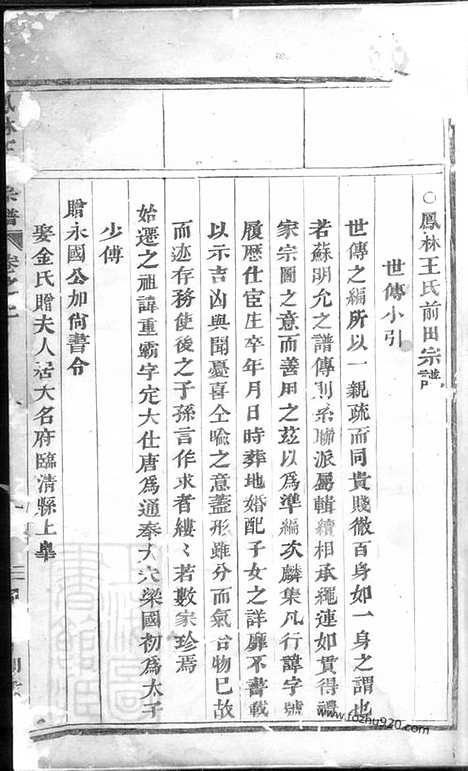 ○鳳林王氏前田宗譜
世傳小引
世傳之編所以一親疏而同貴賤徹百身如一身之謂也
若蘇明允之譜傳則系聯派屬輯續相承繩連如貫得禮
家宗圖之意而善用之茲以為準編次麟集凡行諱字號
履歷仕宦生卒年月日時葬地婚配子女之詳靡不書載
以示吉凶與聞憂喜仝喻之意蓋形雖分而氣 物已故
而迹存務使後之子孫言作求者縷〻若數家珍焉
始遷之祖諱重霸字定大仕唐為通奉大 梁國初為太子
少傅
贈永國公加尙書令
娶金氏贈夫人 大名府臨清縣上
宗譜 卷之
www.fozhu920.com